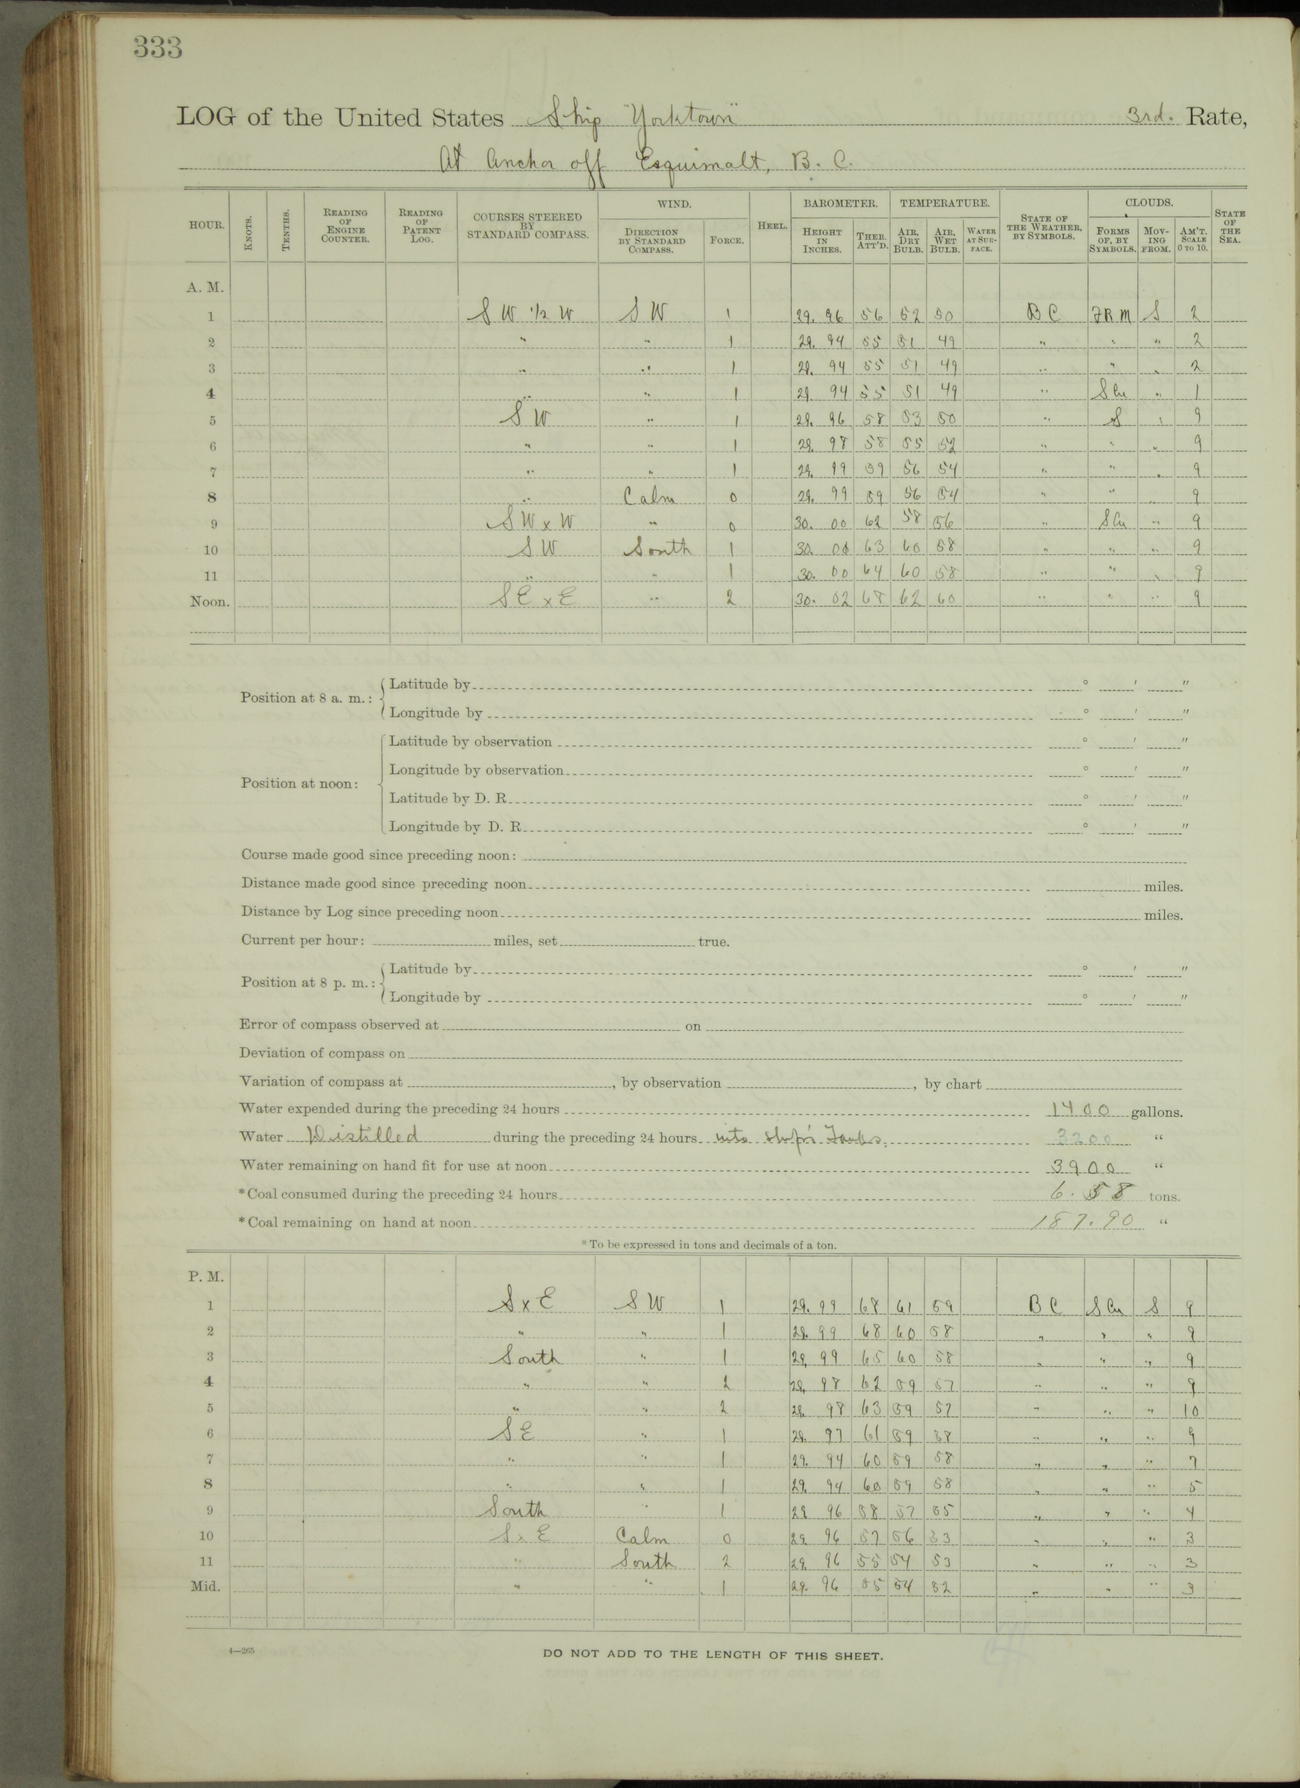 333
LOG of the United States Ship "Yorktown" 3rd. Rate,
At Anchor off Esquimalt, B. C.
HOUR. KNOTS. TENTHS. READING OF ENGINE COUNTER. READING OF PATENT LOG. COURSES STEERED BY STANDARD COMPASS. WIND. DIRECTION BY STANDARD COMPASS. FORCE. HEEL. BAROMETER. HEIGHT IN INCHES. THER. ATT'D. TEMPERATURE. AIR, DRY BULB. AIR, WET BULB. WATER AT SURFACE. STATE OF THE WEATHER, BY SYMBOLS. CLOUDS. FORMS OF, BY SYMBOLS. MOVING FROM. AM'T. SCALE 0 TO 10. STATE OF THE SEA.
A. M.
1 S W 1/2 W S W 1 29. 96 56 52 50 B C S 2
2 " " 1 29. 94 55 51 49 " " " 2
3 " " 1 29. 94 55 51 49 " " " 2
4 " " 1 29. 94 55 51 49 " S Cu " 1
5 S W " 1 29. 96 58 53 50 " S " 9
6 " " 1 29. 98 58 55 52 " " " 9
7 " " 1 29. 99 59 56 54 " " " 9
8 " Calm 0 29. 99 59 56 54 " " " 9
9 S W x W " 0 30. 00 62 58 56 " S Cu " 9
10 S W South 1 30. 00 63 60 58 " " " 9
11 " " 1 30. 00 64 60 58 " " " 9
Noon. S E x E " 2 30. 02 68 62 60 " " " 9
Position at 8 a. m.: Latitude by ° ' "
Longitude by ° ' "
Position at noon: Latitude by observation ° ' "
Longitude by observation ° ' "
Latitude by D. R. ° ' "
Longitude by D. R. ° ' "
Course made good since preceding noon:
Distance made good since preceding noon miles.
Distance by Log since preceding noon miles.
Current per hour: miles, set true.
Position at 8 p. m.: Latitude by ° ' "
Longitude by ° ' "
Error of compass observed at on
Deviation of compass on
Variation of compass at , by observation , by chart
Water expended during the preceding 24 hours 1400 gallons.
Water Distilled during the preceding 24 hours into ship's Tanks. 3200 "
Water remaining on hand fit for use at noon 3900 "
*Coal consumed during the preceding 24 hours 6.58 tons.
*Coal remaining on hand at noon 187.90 "
*To be expressed in tons and decimals of a ton.
P. M.
1 S x E S W 1 29. 99 68 61 59 B C S Cu S 9
2 " " 1 29. 99 68 60 58 " " " 9
3 South " 1 29. 99 65 60 58 " " " 9
4 " " 2 29. 98 62 59 57 " " " 9
5 " " 2 29. 98 63 59 57 " " " 10
6 S E " 1 29. 97 61 59 58 " " " 9
7 " " 1 29. 94 60 59 58 " " " 7
8 " " 1 29. 94 60 59 58 " " " 5
9 South " 1 29. 96 58 57 55 " " " 4
10 S x E Calm 0 29. 96 57 56 53 " " " 3
11 " South 2 29. 96 55 54 53 " " " 3
Mid. " " 1 29. 96 55 54 52 " " " 3
4—265
DO NOT ADD TO THE LENGTH OF THIS SHEET.